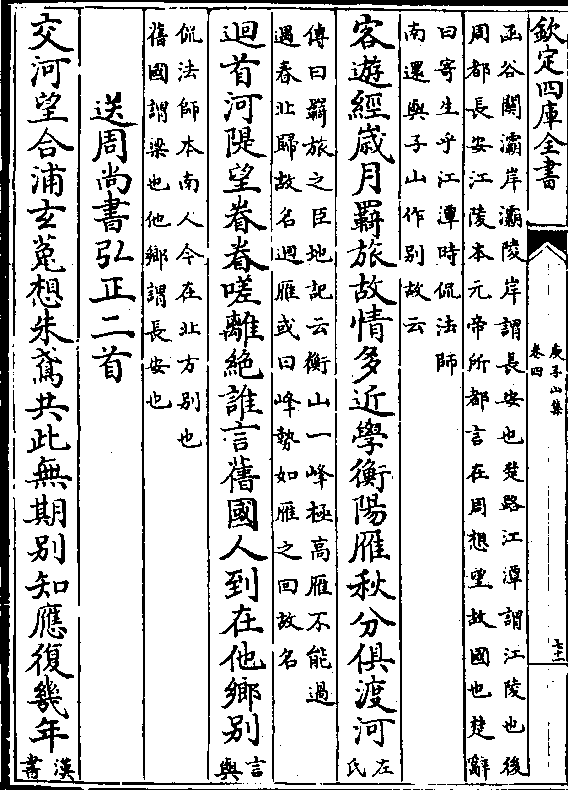 欽定四庫全書
庾子山集
卷四
七十二
函谷關灞岸灞陵岸謂長安也楚路江潭謂江陵也後
周都長安江陵本元帝所都言在周想望故國也楚辭
曰寄生乎江潭時侃法師
南還與子山作别故云
客遊經歲月羇旅故情多近學衡陽雁秋分俱渡河左氏
傳曰羇旅之臣地記云衡山一峰極高雁不能過
遇春北歸故名迴雁或曰峰勢如雁之回故名
迴首河隄望眷眷嗟離絶誰言舊國人到在他鄉别言與
侃法師本南人今在北方别也
舊國謂梁也他鄉謂長安也
送周尚書弘正二首
交河望合浦玄菟想朱鳶共此無期别知應復幾年漢書